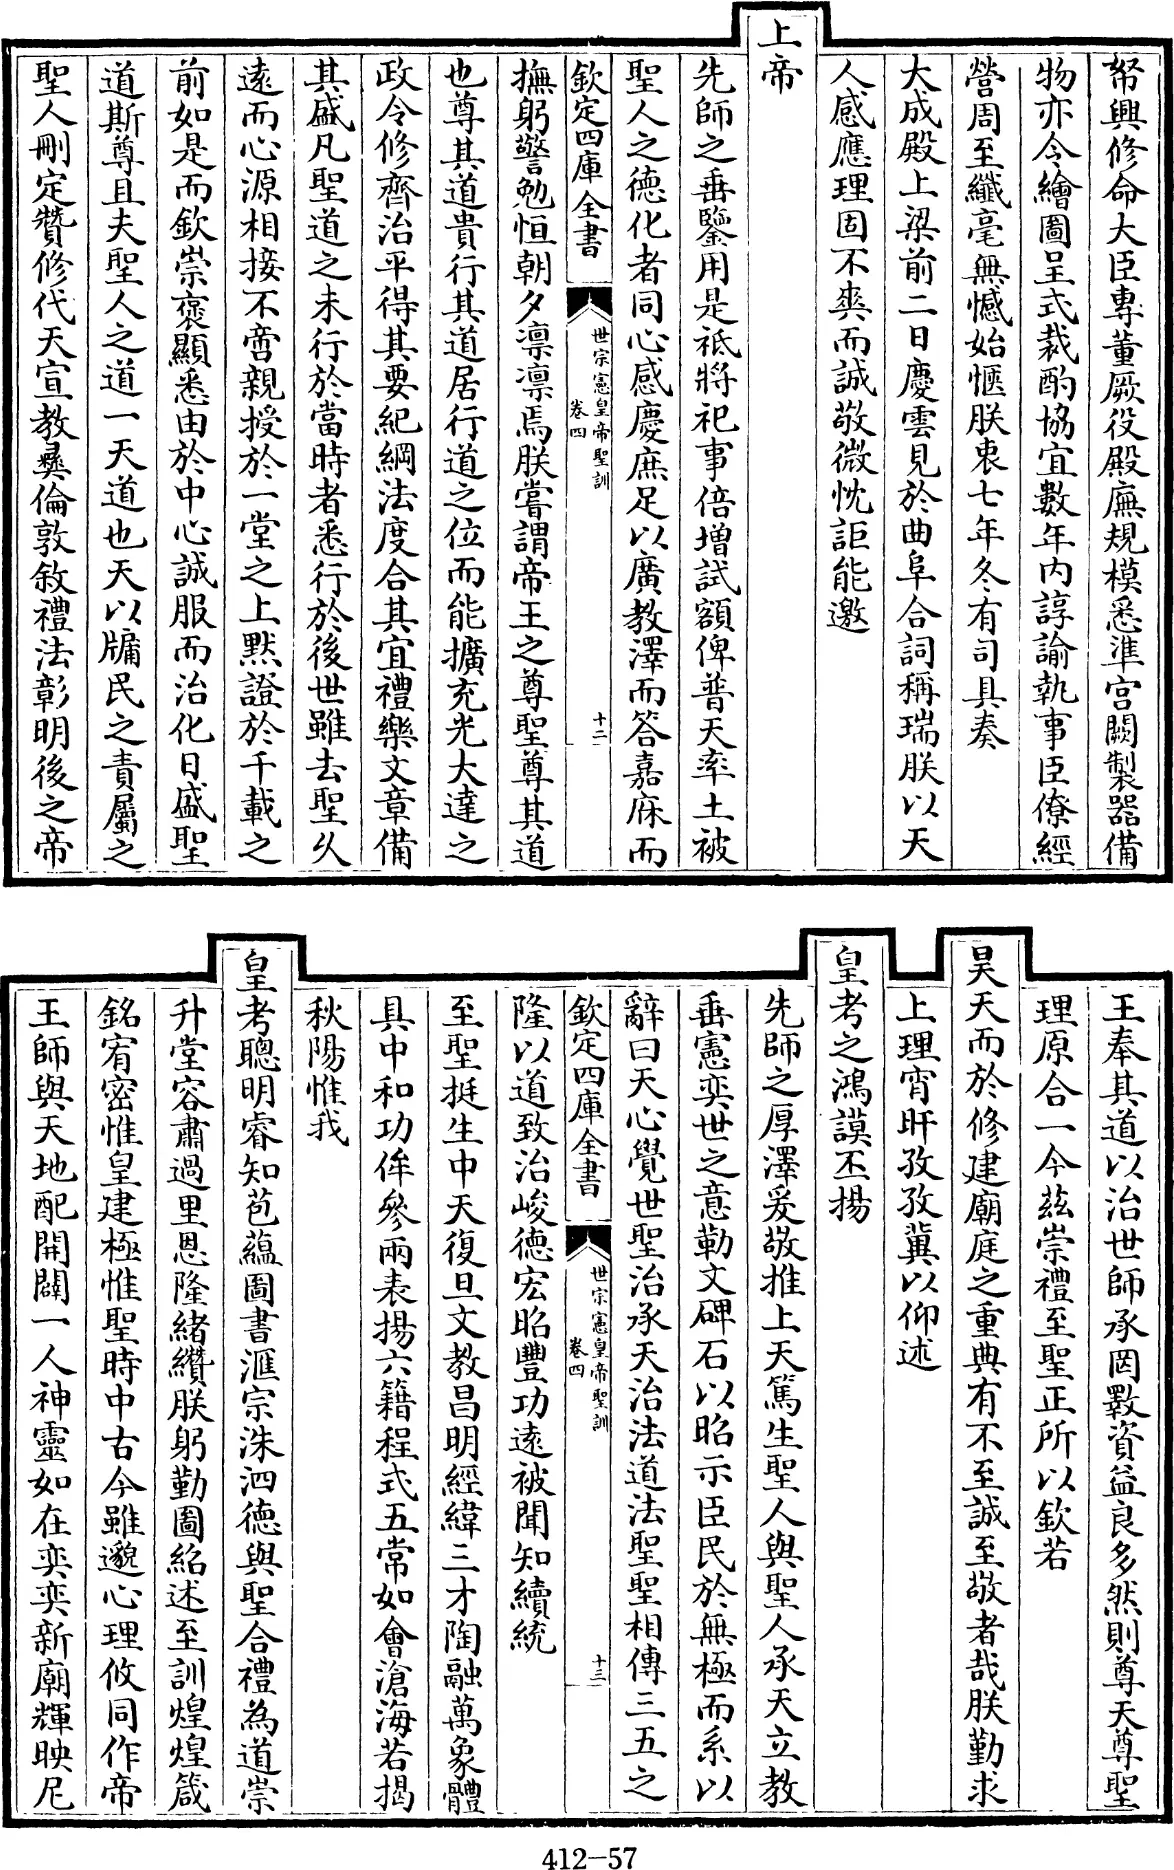 帑興修命大臣專董厥役殿廡規模悉準宮闕製器備
物亦令繪圖呈式裁酌協宜數年內諄諭執事臣僚經
營周至纖毫無憾始愜朕衷七年冬有司具奏
大成殿上梁前二日慶雲見於曲阜合詞稱瑞朕以天
人感應理固不爽而誠敬微忱詎能邀
上帝
先師之垂鑒用是祗將祀事倍增試額俾普天率土被
聖人之德化者同心感慶庶足以廣教澤而答嘉庥而
欽定四庫全書
世宗憲皇帝聖訓
卷四
十二
撫躬警勉恒朝夕凛凛焉朕嘗謂帝王之尊聖尊其道
也尊其道貴行其道居行道之位而能擴充光大達之
政令修齊治平得其要紀綱法度合其宜禮樂文章備
其盛凡聖道之未行於當時者悉行於後世雖去聖久
遠而心源相接不啻親授於一堂之上默證於千載之
前如是而欽崇褒顯悉由於中心誠服而治化日盛聖
道斯尊且夫聖人之道一天道也天以牖民之責屬之
聖人刪定贊修代天宣教彝倫敦敘禮法彰明後之帝
王奉其道以治世師承罔斁資益良多然則尊天尊聖
理原合一今茲崇禮至聖正所以欽若
昊天而於修建廟庭之重典有不至誠至敬者哉朕勤求
上理宵旰孜孜冀以仰述
皇考之鴻謨丕揚
先師之厚澤爰敬推上天篤生聖人與聖人承天立教
垂憲奕世之意勒文碑石以昭示臣民於無極而系以
辭曰天心覺世聖治承天治法道法聖聖相傳三五之
欽定四庫全書
世宗憲皇帝聖訓
卷四
十三
隆以道致治峻德宏昭豐功遠被聞知續統
至聖挺生中天復旦文教昌明經緯三才陶融萬象體
具中和功侔參兩表揚六籍程式五常如會滄海若揭
秋陽惟我
皇考聰明睿知苞蘊圖書滙宗洙泗德與聖合禮為道崇
升堂容肅過里恩隆緒纘朕躬勤圖紹述至訓煌煌箴
銘宥密惟皇建極惟聖時中古今雖邈心理攸同作帝
王師與天地配開闢一人神靈如在奕奕新廟輝映尼
412-57